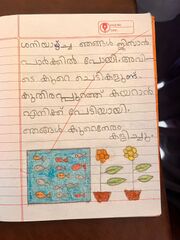 ശനിയാഴ്ച ഞങ്ങൾ
പാർക്കിൽ പോയി. അവി-
ടെ കുറെ ചെടികളുണ്ട്.
കുതിരപ്പുറത്ത് കയറാൻ
എനിക്ക് പേടിയായി.
ഞങ്ങൾ കുറെനേരം
കളിച്ചു.